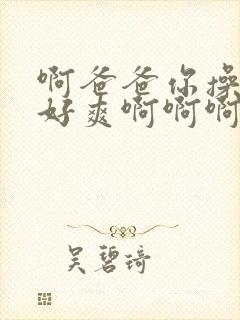 啊爸爸你操
好爽啊啊啊
吴碧琦